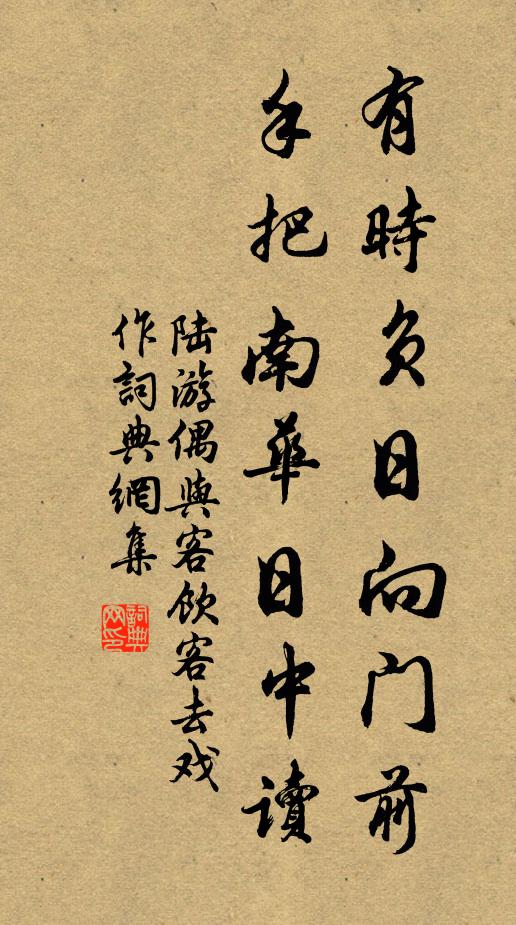 有時負日向門前
手把南華日中讀
陆游偶與客飲客去戏
作詞典網集
詞典網印